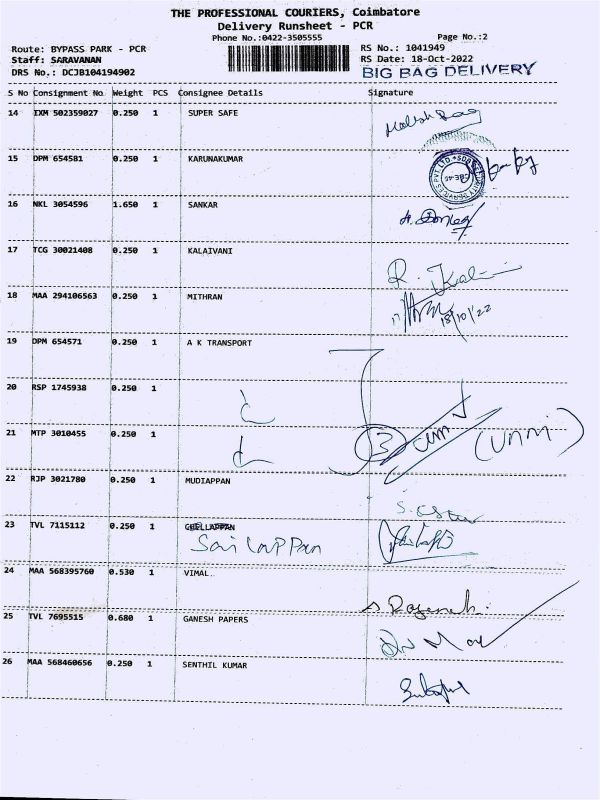 THE PROFESSIONAL COURIERS, Coimbatore
Delivery Runsheet - PCR
Phone No.:0422-3505555 Page No.:2
Route: BYPASS PARK - PCR RS No.: 1041949
Staff: SARAVANAN RS Date: 18-Oct-2022
DRS No.: DCJB104194902 BIG BAG DELIVERY
S No Consignment No. Weight PCS Consignee Details Signature
14 IXM 502359027 0.250 1 SUPER SAFE
15 DPM 654581 0.250 1 KARUNAKUMAR
16 NKL 3054596 1.650 1 SANKAR
17 TCG 30021408 0.250 1 KALAIVANI
18 MAA 294106563 0.250 1 MITHRAN
18/10/22
19 DPM 654571 0.250 1 A K TRANSPORT
20 RSP 1745938 0.250 1
21 MTP 3010455 0.250 1 3
22 RJP 3021780 0.250 1 MUDIAPPAN
23 TVL 7115112 0.250 1
24 MAA 568395760 0.530 1 VIMAL
25 TVL 7695515 0.680 1 GANESH PAPERS
26 MAA 568460656 0.250 1 SENTHIL KUMAR